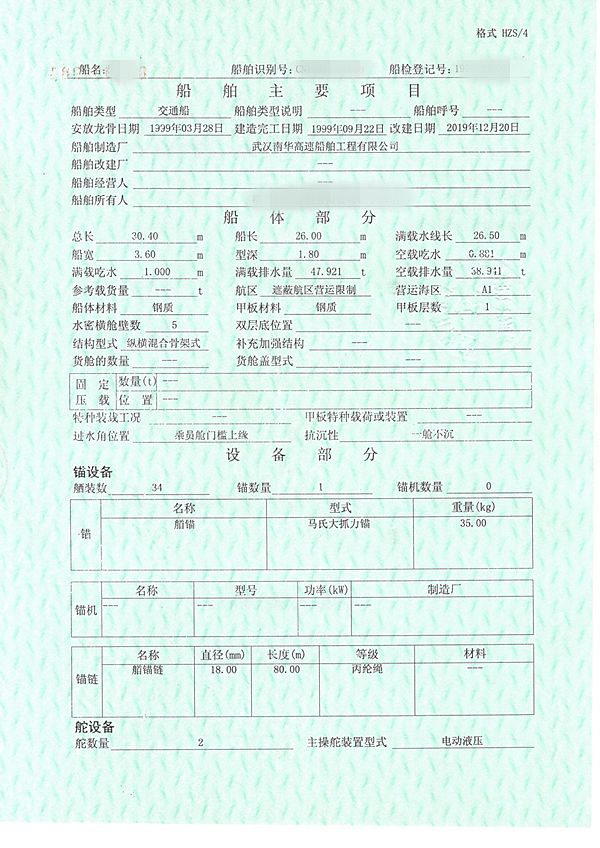 格式 HZS/4
船名: 船舶识别号: 船检登记号:
船舶主要项目
船舶类型 交通船 船舶类型说明 --- 船舶呼号 ---
安放龙骨日期 1999年03月28日 建造完工日期 1999年09月22日 改建日期 2019年12月20日
船舶制造厂 武汉南华高速船舶工程有限公司
船舶改建厂 ---
船舶经营人 ---
船舶所有人
船体部分
总长 30.40 m 船长 26.00 m 满载水线长 26.50 m
船宽 3.60 m 型深 1.80 m 空载吃水 0.881 m
满载吃水 1.000 m 满载排水量 47.921 t 空载排水量 38.941 t
参考载货量 --- t 航区 遮蔽航区营运限制 营运海区 A1
船体材料 钢质 甲板材料 钢质 甲板层数 1
水密横舱壁数 5 双层底位置 ---
结构型式 纵横混合骨架式 补充加强结构 ---
货舱的数量 --- 货舱盖型式 ---
固定 数量(t) ---
压载 位置 ---
特种装载工况 --- 甲板特种载荷或装置 ---
过水角位置 乘员舱门槛上缘 抗沉性 一舱不沉
设备部分
锚设备
舾装数 34 锚数量 1 锚机数量 0
名称 型式 重量(kg)
锚 船锚 马氏大抓力锚 35.00
名称 型号 功率(kW) 制造厂
锚机 --- --- --- ---
名称 直径(mm) 长度(m) 等级 材料
锚链 船锚链 18.00 80.00 丙纶绳 ---
舵设备
舵数量 2 主操舵装置型式 电动液压